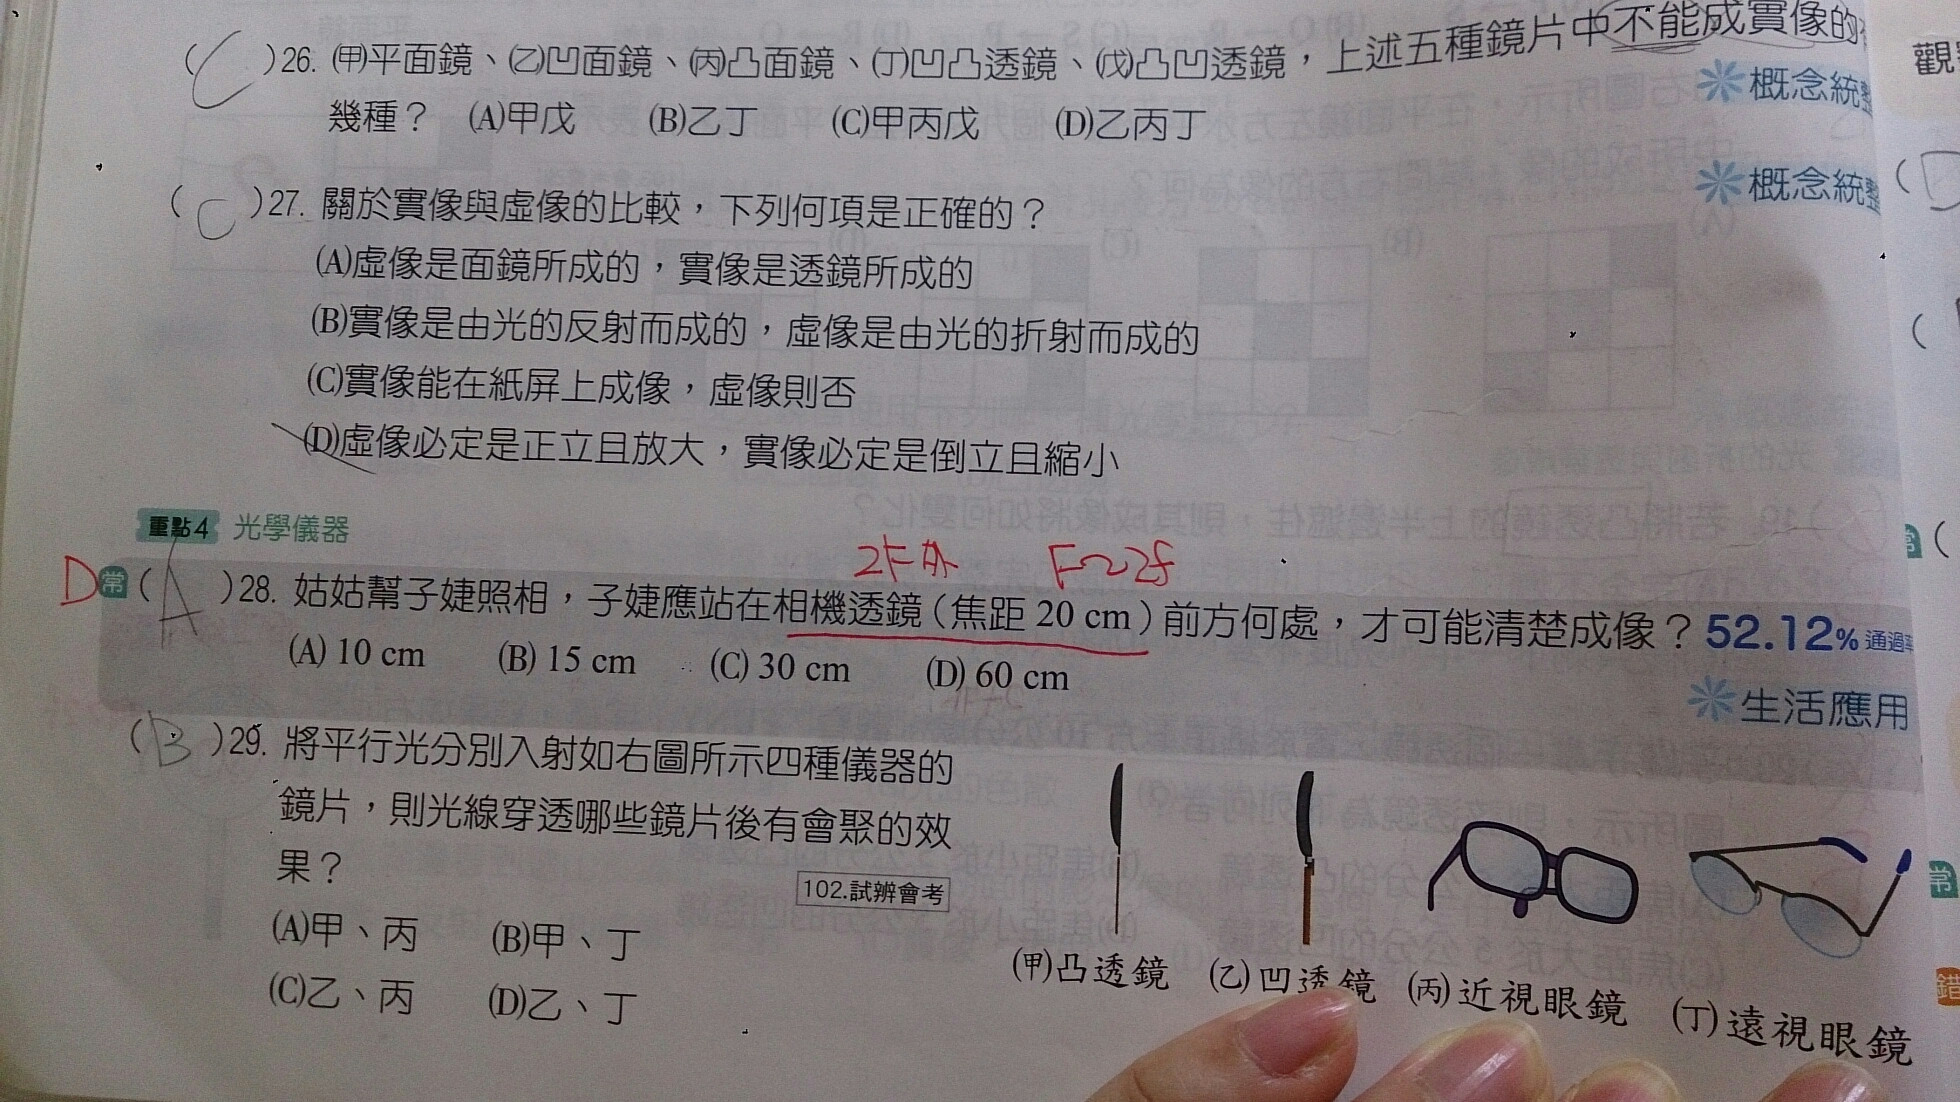 (C)26. (甲)平面鏡、(乙)凹面鏡、(丙)凸面鏡、(丁)凹凸透鏡、(戊)凸凹透鏡，上述五種鏡片中不能成實像的
幾種？ (A)甲戊 (B)乙丁 (C)甲丙戊 (D)乙丙丁
概念統整
(C)27. 關於實像與虛像的比較，下列何項是正確的？
概念統整
(A)虛像是面鏡所成的，實像是透鏡所成的
(B)實像是由光的反射而成的，虛像是由光的折射而成的
(C)實像能在紙屏上成像，虛像則否
(D)虛像必定是正立且放大，實像必定是倒立且縮小
重點4 光學儀器
2F外 F~2f
D 常 (A)28. 姑姑幫子婕照相，子婕應站在相機透鏡（焦距 20 cm）前方何處，才可能清楚成像？ 52.12% 通過率
(A) 10 cm (B) 15 cm (C) 30 cm (D) 60 cm
生活應用
(B)29. 將平行光分別入射如右圖所示四種儀器的
鏡片，則光線穿透哪些鏡片後有會聚的效
果？
102.試辨會考
(A)甲、丙 (B)甲、丁
(C)乙、丙 (D)乙、丁
(甲)凸透鏡 (乙)凹透鏡 (丙)近視眼鏡 (丁)遠視眼鏡
觀
常
常
錯